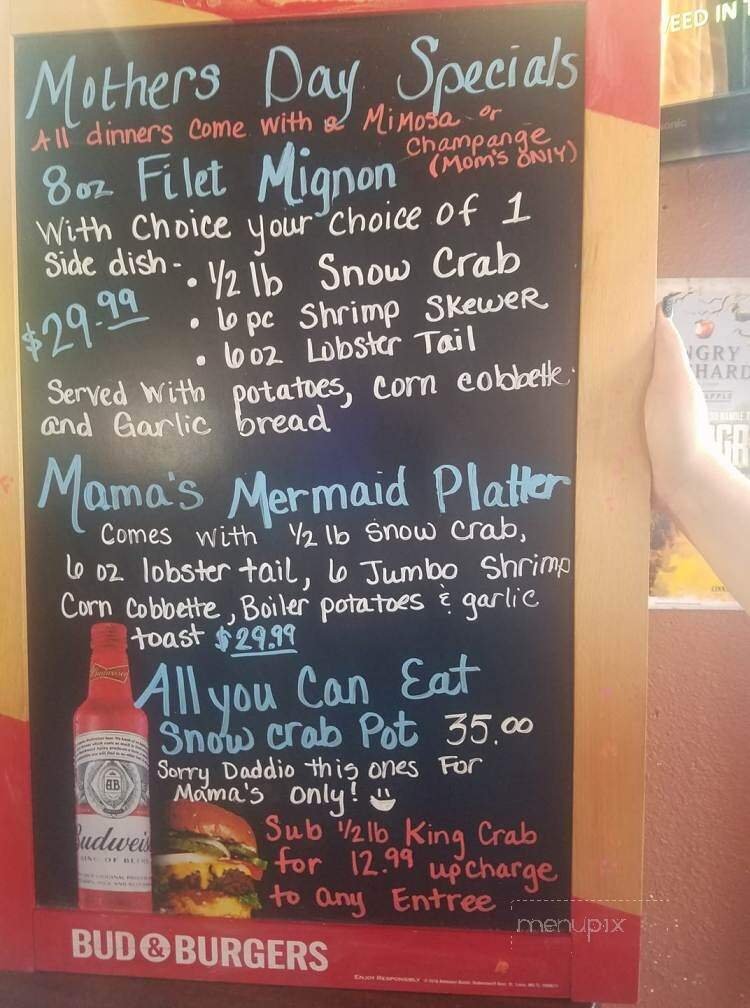 Mothers Day Specials
All dinners Come with a Mimosa or
Champange
(Mom's ONLY)
8oz Filet Mignon
With Choice your Choice of 1
Side dish -
• 1/2 lb Snow Crab
$29.99
• 6 pc Shrimp Skewer
• 6 oz Lobster Tail
Served with potatoes, corn cobbette
and Garlic bread
Mama's Mermaid Platter
Comes with 1/2 lb Snow Crab,
6 oz lobster tail, 6 Jumbo Shrimp
Corn Cobbette, Boiler potatoes & garlic
toast $29.99
All you Can Eat
Snow crab Pot 35.00
Sorry Daddio this ones For
Mama's only!
Sub 1/2 lb King Crab
for 12.99 upcharge
to any Entree
Budweiser
AB
Budweis
KING OF BEERS
BUD & BURGERS
ENJOY RESPONSIBLY
menupix
EED IN
NGRY
HARD
APPLE